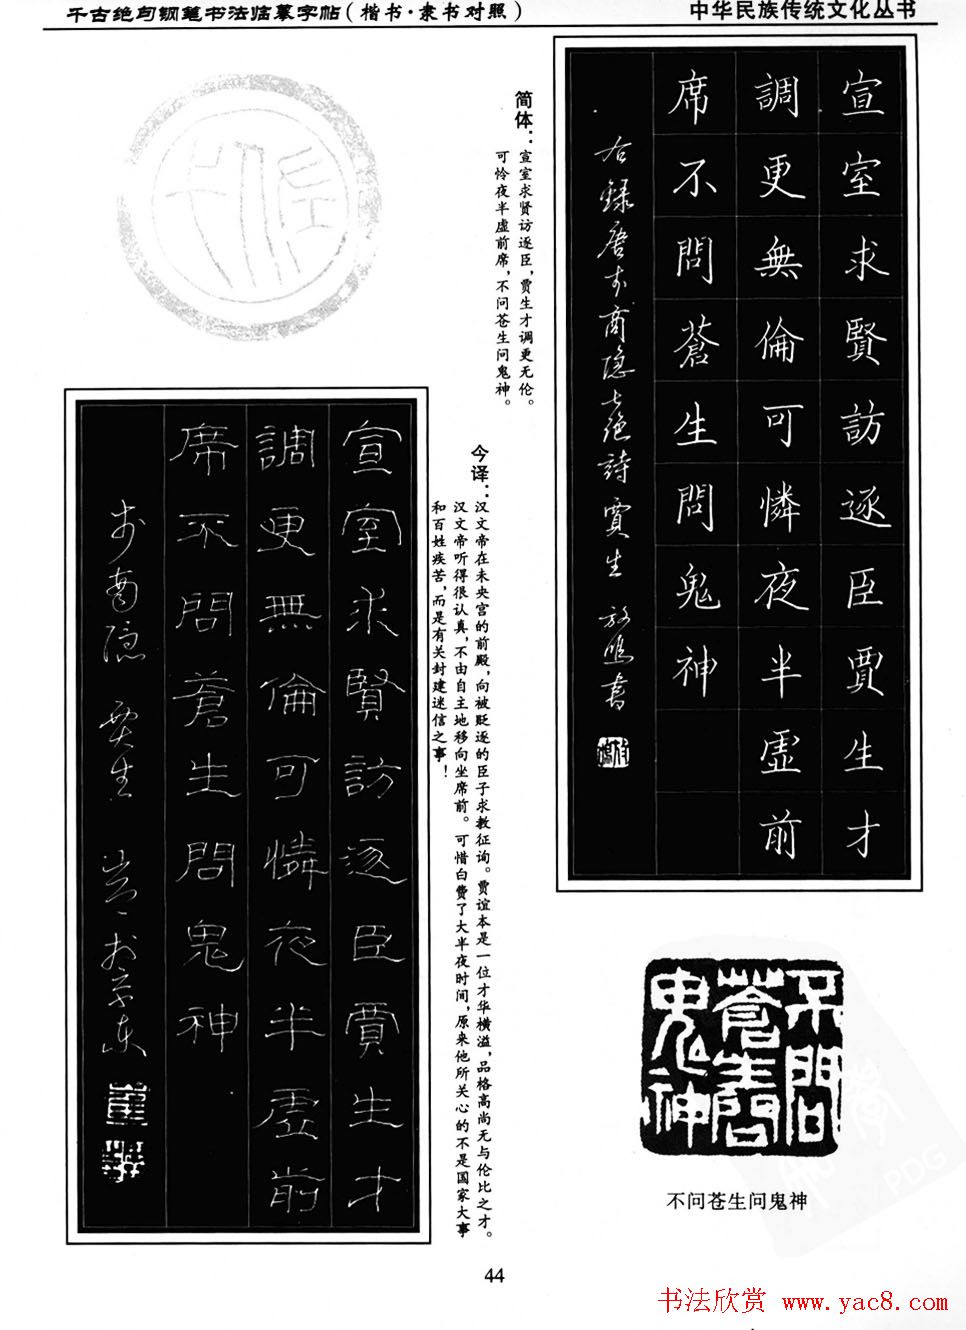 千古绝句钢笔书法临摹字帖(楷书·隶书对照)
中华民族传统文化丛书
宣室求賢訪逐臣賈生才
調更無倫可憐夜半虛前
席不問蒼生問鬼神
右録唐李商隐七绝詩賈生
简体：
宣室求贤访逐臣，贾生才调更无伦。
可怜夜半虚前席，不问苍生问鬼神。
今译：
汉文帝在未央宫的前殿，向被贬逐的臣子求教征询。贾谊本是一位才华横溢，品格高尚无与伦比之才。
汉文帝听得很认真，不由自主地移向坐席前。可惜白费了大半夜时间，原来他所关心的不是国家大事
和百姓疾苦，而是有关封建迷信之事！
宣室求賢訪逐臣賈生才
調更無倫可憐夜半虛前
席不問蒼生問鬼神
李商隐 賈生
不問蒼生問鬼神
不问苍生问鬼神
PDG
44
书法欣赏 www.yac8.com